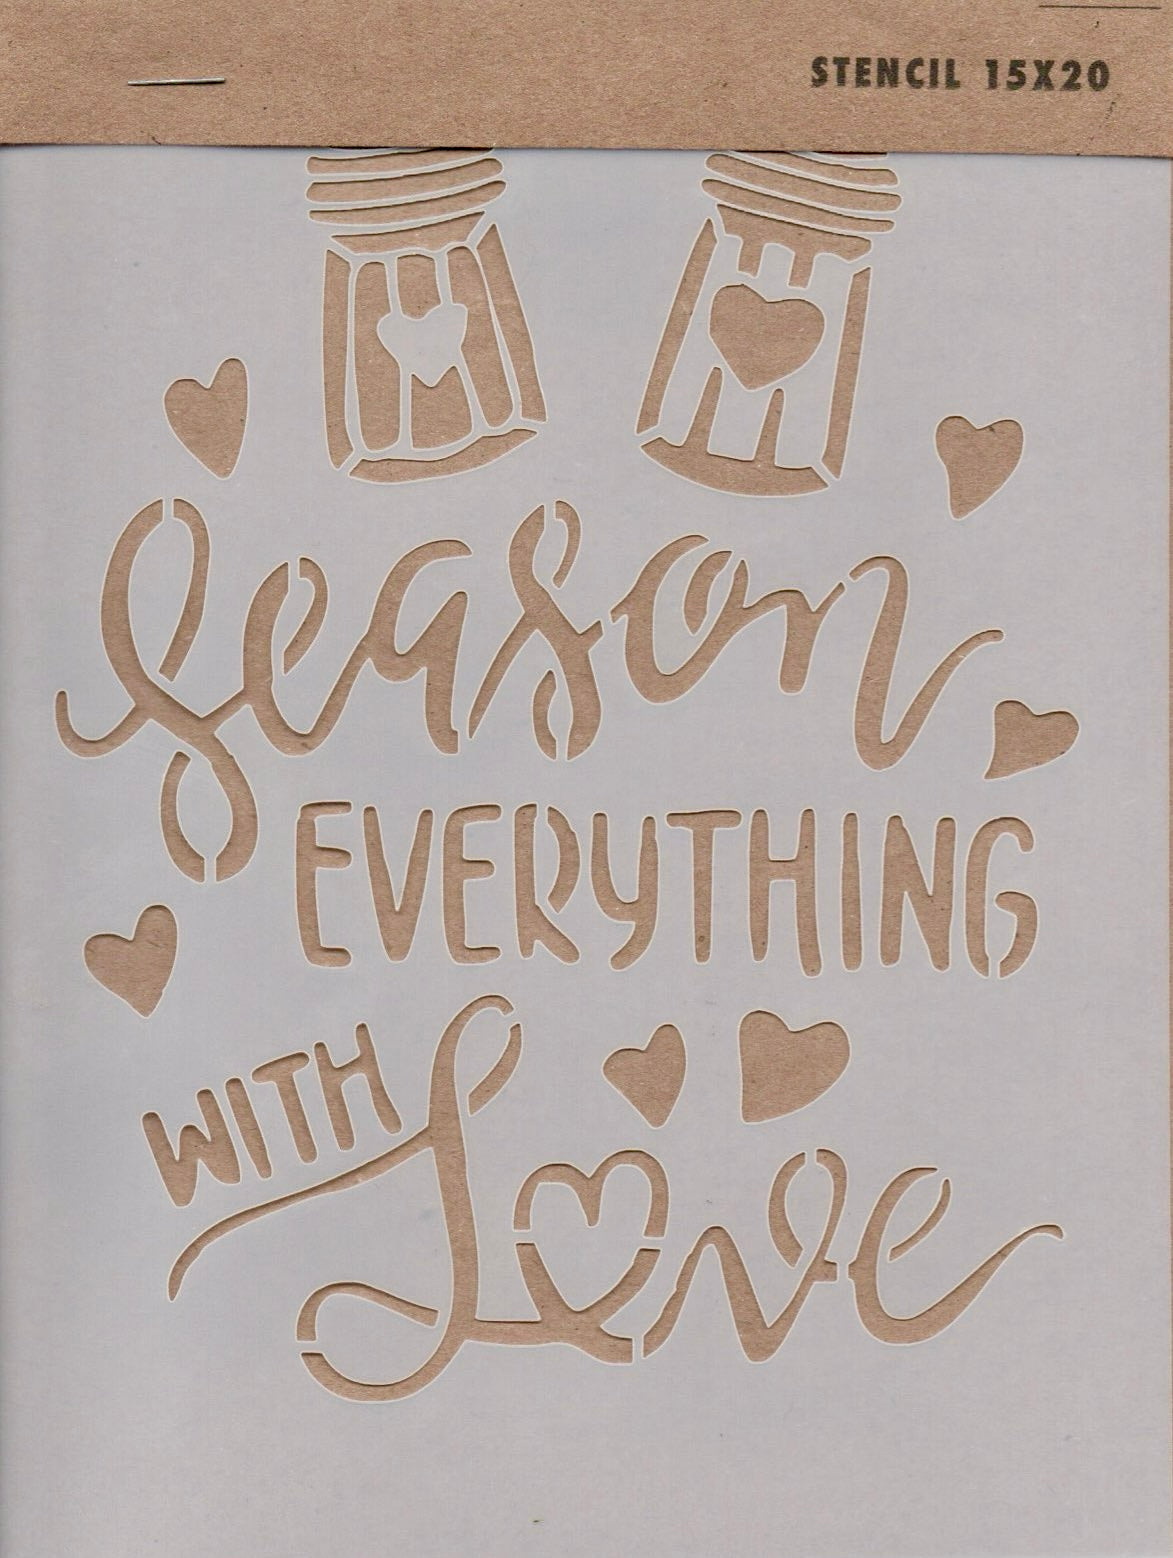 STENCIL 15X20
Season
EVERYTHING
WITH
Love